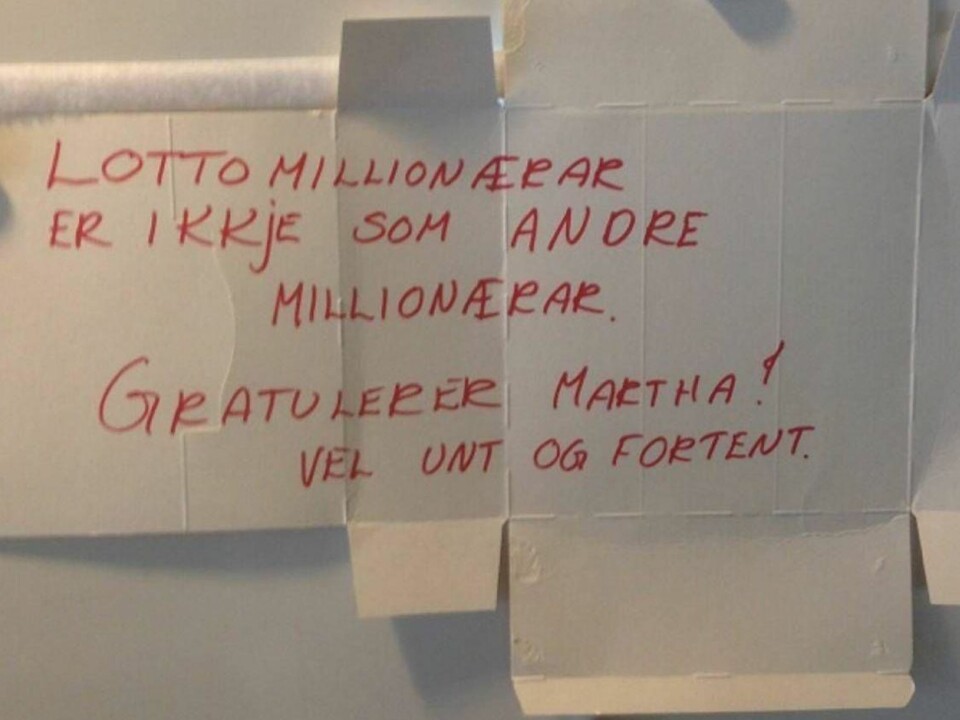 LOTTO MILLIONÆRAR
ER IKKjE SOM ANDRE
MILLIONÆRAR.
GRATULERER MARTHA!
VEL UNT OG FORTENT.